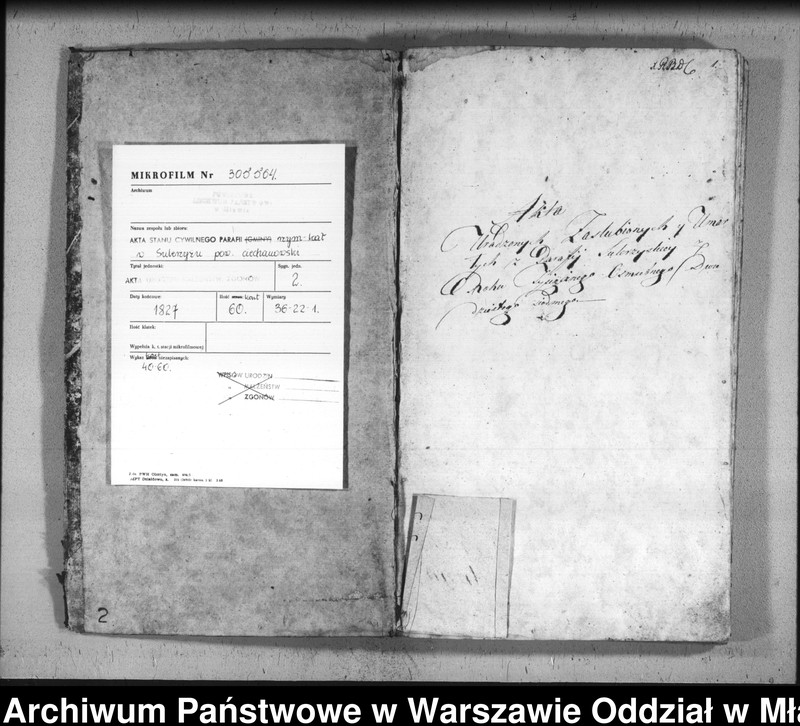 MIKROFILM Nr 305504.
Archiwum
Nazwa zespołu lub zbioru
AKTA STANU CYWILNEGO PARAFII (GMINY) rzym-kat
w Sulerzyżu pow. ciechanowski
Tytuł jednostki
Sygn. jedn.
AKTA
2.
Daty końcowe
Ilość kart
Wymiary
1827
60.
36-22-1.
Ilość klatek:
Wypełnia k. t. stacji mikrofilmowej
Wykaz kart nieczepionych:
40-60.
WPISÓW URODZIN
" MAŁŻEŃSTW
" ZGONÓW
2
1
Akta
Urodzonych Zaślubionych y Umar
łych z Parafij Sulerzyskiey
Z Roku Tysiącznego Osmsetnego Dwu
dziestego siodmego
Archiwum Państwowe w Warszawie Oddział w Mł